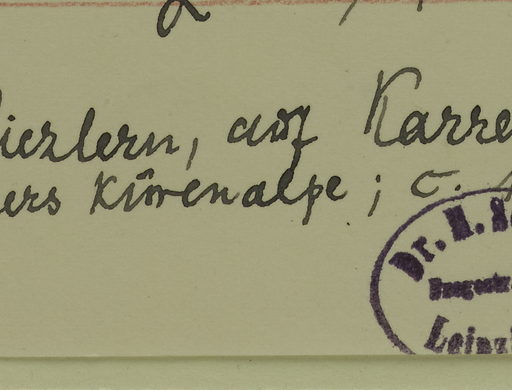 iezlern, auf Karre
ers Kürenalpe ; c.
Dr. H. S
Leipzi